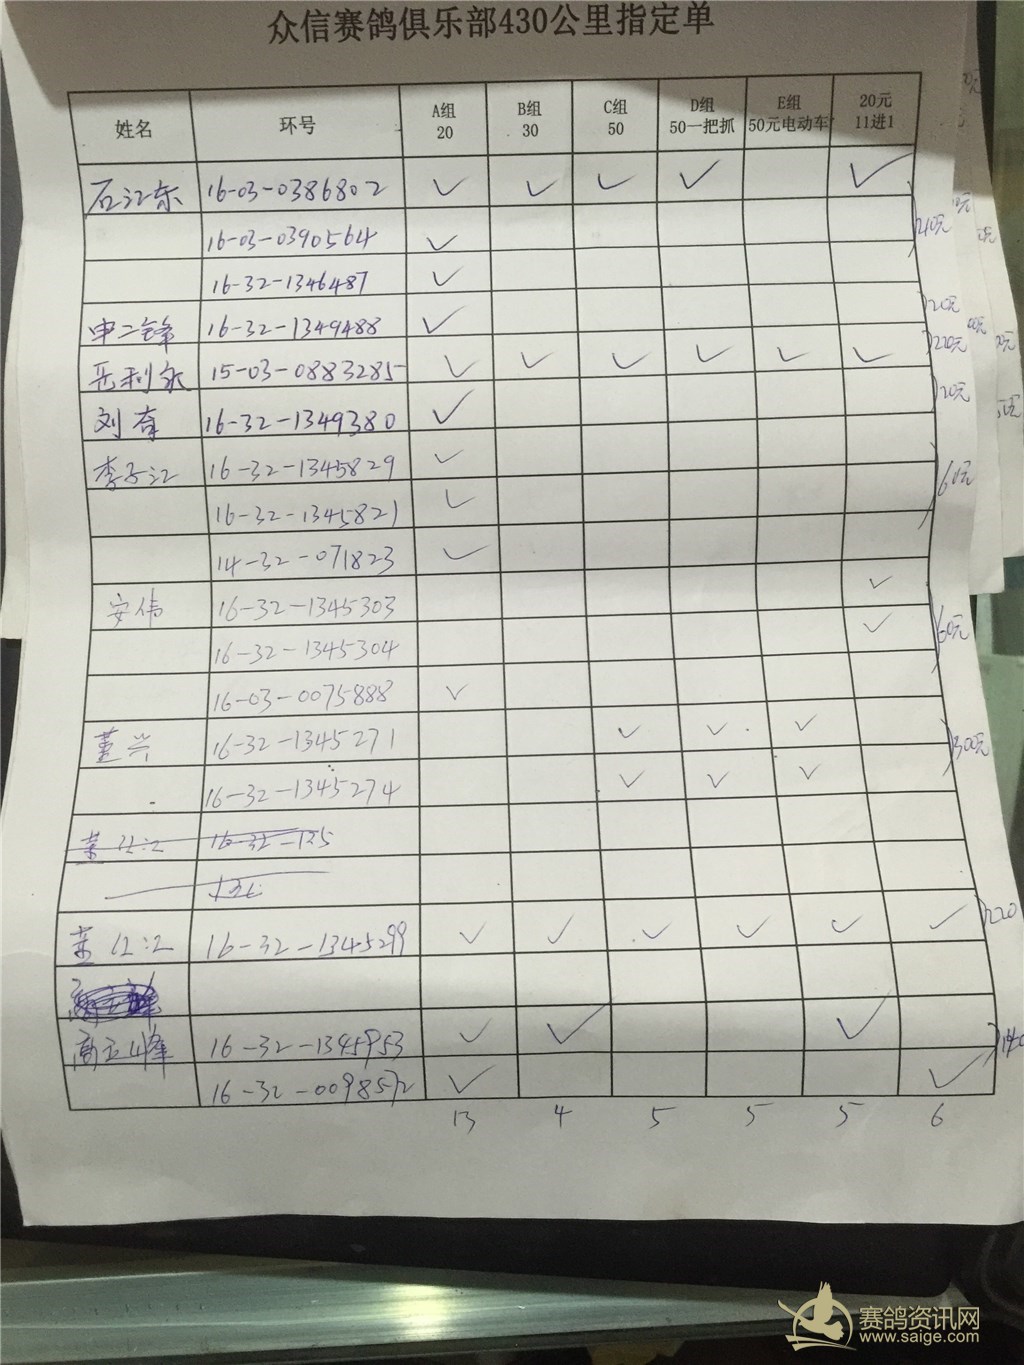 众信赛鸽俱乐部430公里指定单
姓名 环号 A组 20 B组 30 C组 50 D组 50一把抓 E组 50元电动车 20元 11进1
石江东 16-03-0386802 ✓ ✓ ✓ ✓ ✓
16-03-0390564 ✓ 210元
16-32-1346487 ✓
申二锋 16-32-1349488 ✓ 20元
岳利永 15-03-0883285 ✓ ✓ ✓ ✓ ✓ ✓ 220元
刘奇 16-32-1349380 ✓ 20元
李子江 16-32-1345829 ✓
16-32-1345821 ✓ 60元
14-32-071823 ✓
安伟 16-32-1345303 ✓
16-32-1345304 ✓ 60元
16-03-0075888 ✓
董兴 16-32-1345271 ✓ ✓ ✓
16-32-1345274 ✓ ✓ ✓ 300元
16-32-135
红江 16-32-1345299 ✓ ✓ ✓ ✓ ✓ ✓ 220
高玉峰 16-32-1345953 ✓ ✓ ✓
16-32-0098572 ✓ ✓ 140
13 4 5 5 5 6
赛鸽资讯网
www.saige.com